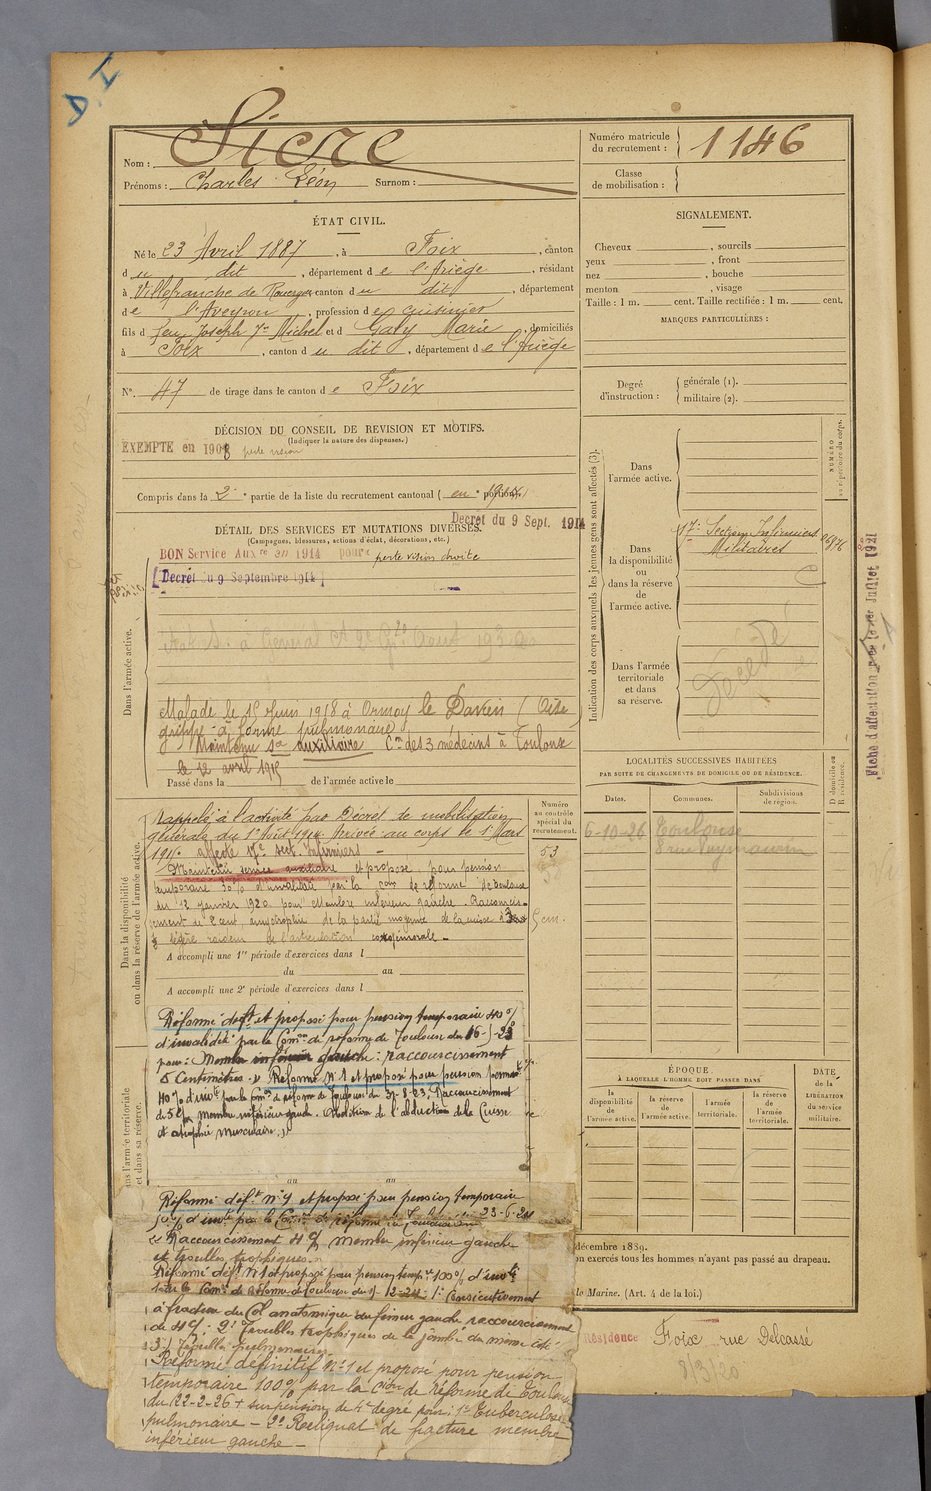 D. I
Nom : Sicre
Prénoms : Charles Léon Surnom :
Numéro matricule du recrutement : 1146
Classe de mobilisation :
ÉTAT CIVIL.
Né le 23 Avril 1887, à Foix, canton
d u dit, département d e l'Ariège, résidant
à Villefranche de Rouergue canton d u dit, département
d e l'Aveyron, profession d e cuisinier
fils d feu Joseph Michel et d Galy Marie, domiciliés
à Foix, canton d u dit, département d e l'Ariège
N° 47 de tirage dans le canton d e Foix
SIGNALEMENT.
Cheveux , sourcils
yeux , front
nez , bouche
menton , visage
Taille : 1 m. cent. Taille rectifiée : 1 m. cent.
MARQUES PARTICULIÈRES :
Degré d'instruction : générale (1).
militaire (2).
DÉCISION DU CONSEIL DE REVISION ET MOTIFS.
(Indiquer la nature des dispenses.)
EXEMPTE en 1908 perte vision
Compris dans la 2e partie de la liste du recrutement cantonal ( en 1914 portion).
Decret du 9 Sept. 1914
DÉTAIL DES SERVICES ET MUTATIONS DIVERSES.
(Campagnes, blessures, actions d'éclat, décorations, etc.)
BON Service Auxre en 1914 pour perte vision droite
Décret du 9 Septembre 1914
Dans l'armée active.
Malade le 15 Juin 1918 à Ormoy le Davien (Oise)
grippe à forme pulmonaire
Maintenu sce auxiliaire Con des 3 médecins à Toulouse
le 12 avril 1915
Passé dans la de l'armée active le
Indication des corps auxquels les jeunes gens sont affectés (3).
Dans l'armée active.
Dans la disponibilité ou dans la réserve de l'armée active.
17e Section Infirmiers
Militaires
Dans l'armée territoriale et dans sa réserve.
Décédé
NUMÉRO au répertoire du corps.
Fiche d'affectation au 1er Juillet 1921
LOCALITÉS SUCCESSIVES HABITÉES
PAR SUITE DE CHANGEMENTS DE DOMICILE OU DE RÉSIDENCE.
Dates. Communes. Subdivisions de région. D domicile ou R résidence.
6-10-26 Toulouse
Dans la disponibilité ou dans la réserve de l'armée active.
Numéro au contrôle spécial du recrutement.
53
Rappelé à l'activité par Décret de mobilisation
générale du 1er Août 1914. Arrivé au corps le 1er Mars
1915 affecté 17e sect. Infirmiers –
Maintenu service auxiliaire et proposé pour pension
temporaire 30% d'invalidité par la Con de réforme de Toulouse
du 12 janvier 1920 pour Membre inférieur gauche. Raccourcis-
sement de 2 cent amyotrophie de la partie moyenne de la cuisse
légère raideur de l'articulation coxofémorale –
A accompli une 1re période d'exercices dans l
du au
A accompli une 2e période d'exercices dans l
Réformé deft et proposé pour pension temporaire 40%
d'invalidité par la Comon de réforme de Toulouse du
pour : Membre inférieur gauche : raccourcissement
5 Centimètres. Réformé N°1 et proposé pour pension
40% d'invté par la Comon de réforme de Toulouse du 31-8-23, Raccourcissement
de 5 c/m membre inférieur gauche. Abolition de l'abduction de la Cuisse
et atrophie musculaire.
Réformé déf.t n°1 et proposé pour pension temporaire
50% d'invté par la Comon de réforme de Toulouse du 23-6-24
Raccourcissement 4 c/m membre inférieur gauche
et troubles trophiques.
Réformé déft N°1 et proposé pour pension tempre 100% d'invté
par la Comon de réforme de Toulouse du 12-24. 1° Consécutivement
à fracture du Col anatomique du fémur gauche raccourcissement
de 4 c/m : 2° Troubles trophiques de la jambe du même côté
3° Troubles pulmonaires.
Réformé définitif N°1 et proposé pour pension
temporaire 100% par la Cion de Réforme de Toulouse
du 22-2-26 + surpension de 4e degré pour : 1° Tuberculose
pulmonaire – 2° Reliquat de fracture membre
inférieur gauche –
ÉPOQUE
À LAQUELLE L'HOMME DOIT PASSER DANS
la disponibilité de l'armée active. la réserve de l'armée active. l'armée territoriale. la réserve de l'armée territoriale. DATE de la LIBÉRATION du service militaire.
décembre 1889.
on exercés tous les hommes n'ayant pas passé au drapeau.
de Marine. (Art. 4 de la loi.)
Résidence Foix rue Delcassé
8/3/20